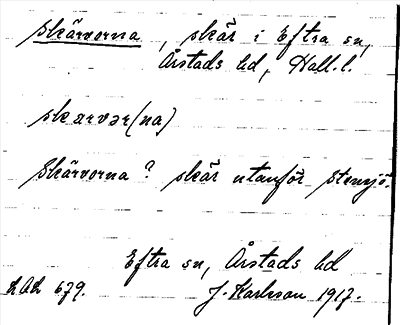 Skärvorna, skär i Eftra sn,
Årstads hd, Hall. l.
skærvər(na)
Skärvorna? skär utanför Stensjö.
Eftra sn, Årstads hd
LAL 679. J. Karlsson 1917.